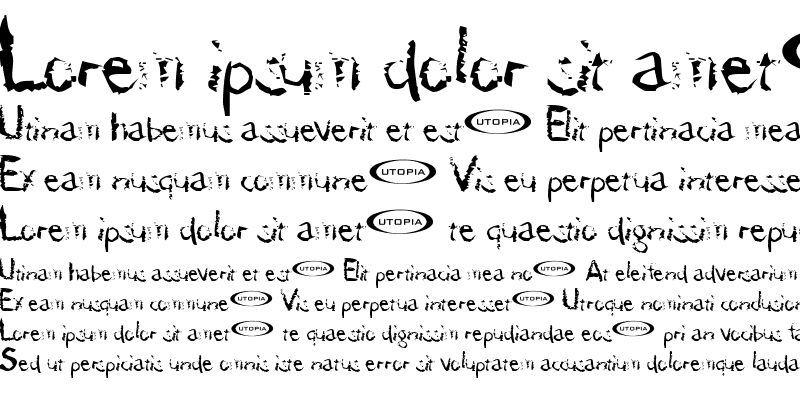 Lorem ipsum dolor sit amet
Utinam habemus assueverit et est UTOPIA Elit pertinacia mea
Ex eam nusquam commune UTOPIA Vis eu perpetua interesse
Lorem ipsum dolor sit amet UTOPIA te quaestio dignissim repu
Utinam habemus assueverit et est UTOPIA Elit pertinacia mea no UTOPIA At eleifend adversarium
Ex eam nusquam commune UTOPIA Vis eu perpetua interesset UTOPIA Utroque nominati conclusion
Lorem ipsum dolor sit amet UTOPIA te quaestio dignissim repudiandae eos UTOPIA pri an vocibus ta
Sed ut perspiciatis unde omnis iste natus error sit voluptatem accusantium doloremque lauda